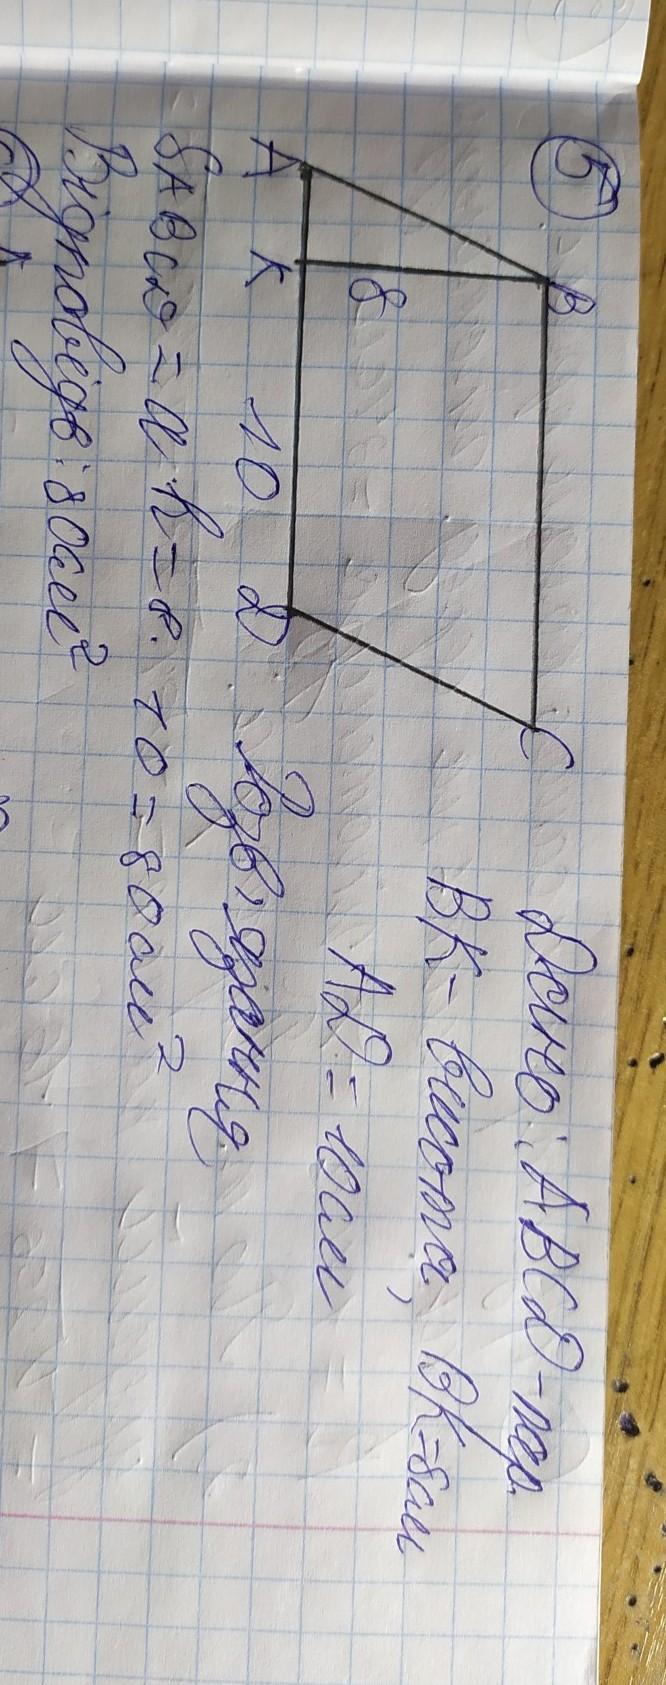 5
B
C
8
A
K
10
D
Дано: ABCD - пар.
BK - висота, BK = 8см
AD = 10см
Розв'язання
SABCD = a · h = 8 · 10 = 80 см²
Відповідь: 80см²